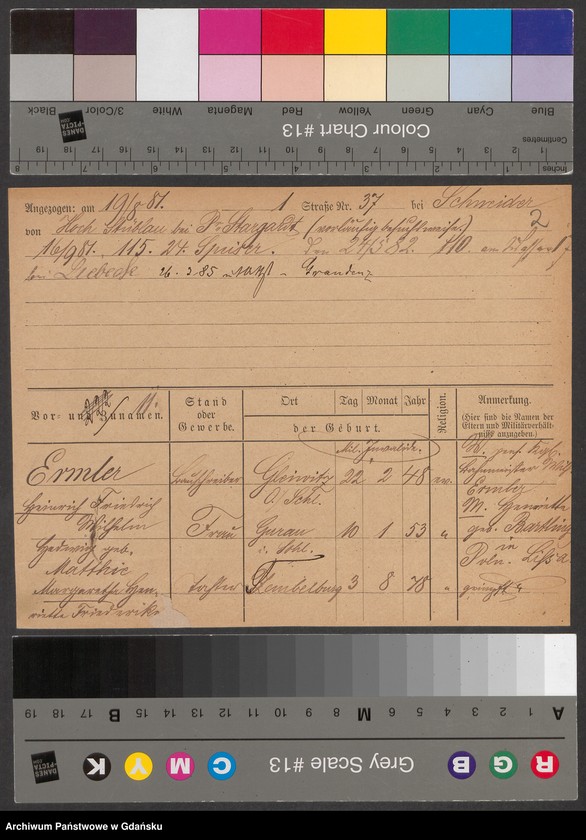 Blue Cyan Green Yellow Red Magenta White 3/Color Black
Colour Chart #13
DANES PICTA .COM
Centimetres
1 2 3 4 5 6 7 8 9 10 11 12 13 14 15 16 17 18 19
Inches 1 2 3 4 5 6 7 8
Angezogen: am 19/8 81. 1 Straße Nr. 37 bei Schmider
von Hoch Stüblau bei Pr. Stargardt (vorläufig besuchsweise) 2
16/9 81. 115. 24. Speiser. Den 24/5 82. 110. am
bei Liebecke 26. 3. 85 Graudenz
Vor- und Zunamen.
Stand oder Gewerbe.
Ort Tag Monat Jahr
der Geburt.
Religion.
Anmerkung.
(Hier sind die Namen der Eltern und Militärverhältnisse anzugeben.)
Mil. Invalide.
Ermler Gleiwitz 22 2 48 ev.
O/Schl.
Heinrich Friedrich
Wilhelm
Frau Gurau 10 1 53 "
Hedwig geb.
Matthie
Margarethe Hen-
riette Friederike
tochter 3 8 78 "
V. pens.
Ermler
M. Henriette
geb.
in
Poln. Lissa
geimpft
A 1 2 3 4 5 6 M 8 9 10 11 12 13 14 15 B 17 18 19
R G B Grey Scale #13 C M Y K
DANES PICTA .COM
Archiwum Państwowe w Gdańsku